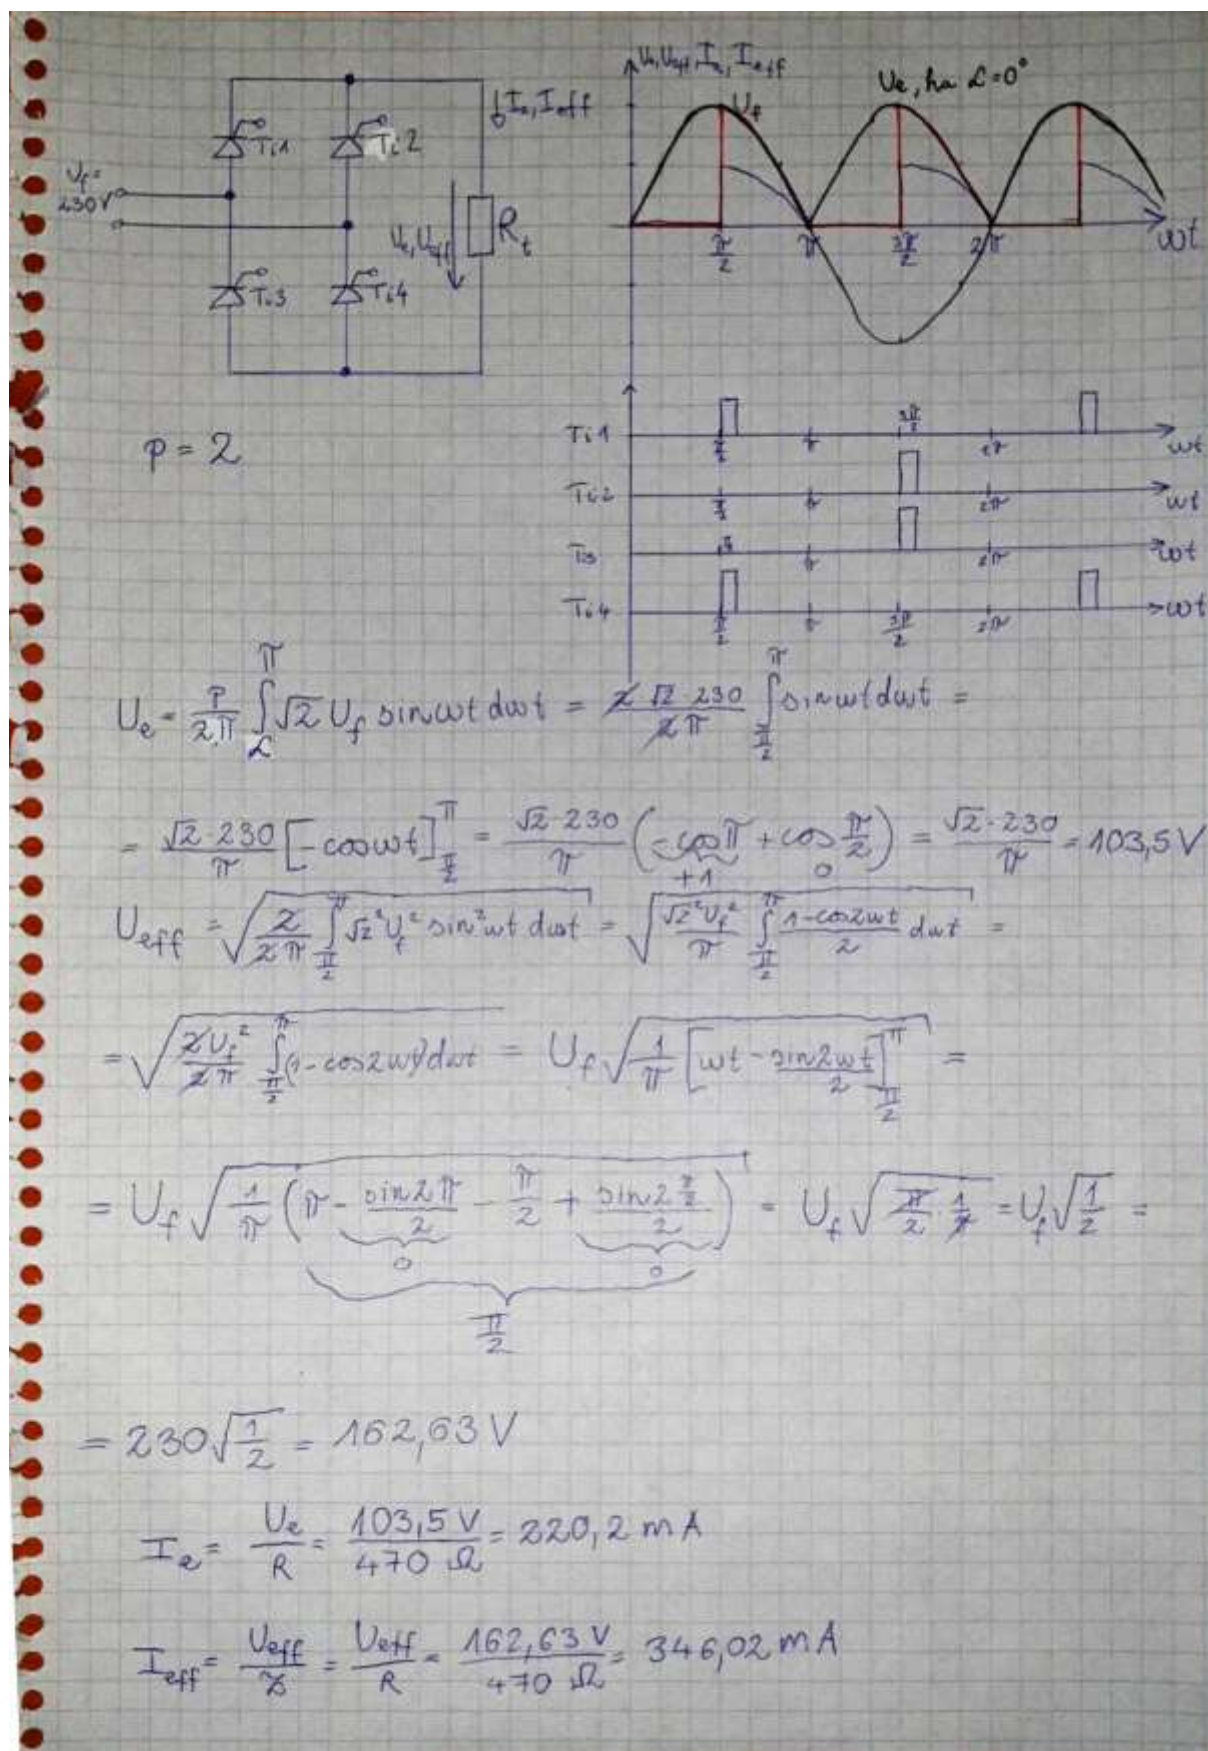 U_e, U_eff, I_e, I_eff
U_e, ha α=0°
↓ I_e, I_eff
U_f
Ti1 Ti2
U_f =
230V
U_e, U_eff
R_t
π/2 π 3π/2 2π ωt
Ti3 Ti4
p = 2
Ti1 π/2 π 3π/2 2π ωt
Ti2 π/2 π 2π ωt
Ti3 π/2 π 2π ωt
Ti4 π/2 π 3π/2 2π ωt
U_e = p/2π ∫_α^π √2 U_f sinωt dωt = 2·√2·230/2π ∫_{π/2}^π sinωt dωt =
= √2·230/π [-cosωt]_{π/2}^π = √2·230/π (-cosπ + cos π/2) = √2·230/π = 103,5 V
+1 0
U_eff = √(2/2π ∫_{π/2}^π √2² U_f² sin²ωt dωt) = √(√2² U_f²/π ∫_{π/2}^π (1-cos2ωt)/2 dωt) =
= √(2U_f²/2π ∫_{π/2}^π (1-cos2ωt) dωt) = U_f √(1/π [ωt - sin2ωt/2]_{π/2}^π) =
= U_f √(1/π (π - sin2π/2 - π/2 + sin2 π/2 /2)) = U_f √(π/2 · 1/π) = U_f √(1/2) =
0 0
π/2
= 230 √(1/2) = 162,63 V
I_e = U_e/R = 103,5 V/470 Ω = 220,2 mA
I_eff = U_eff/Z = U_eff/R = 162,63 V/470 Ω = 346,02 mA